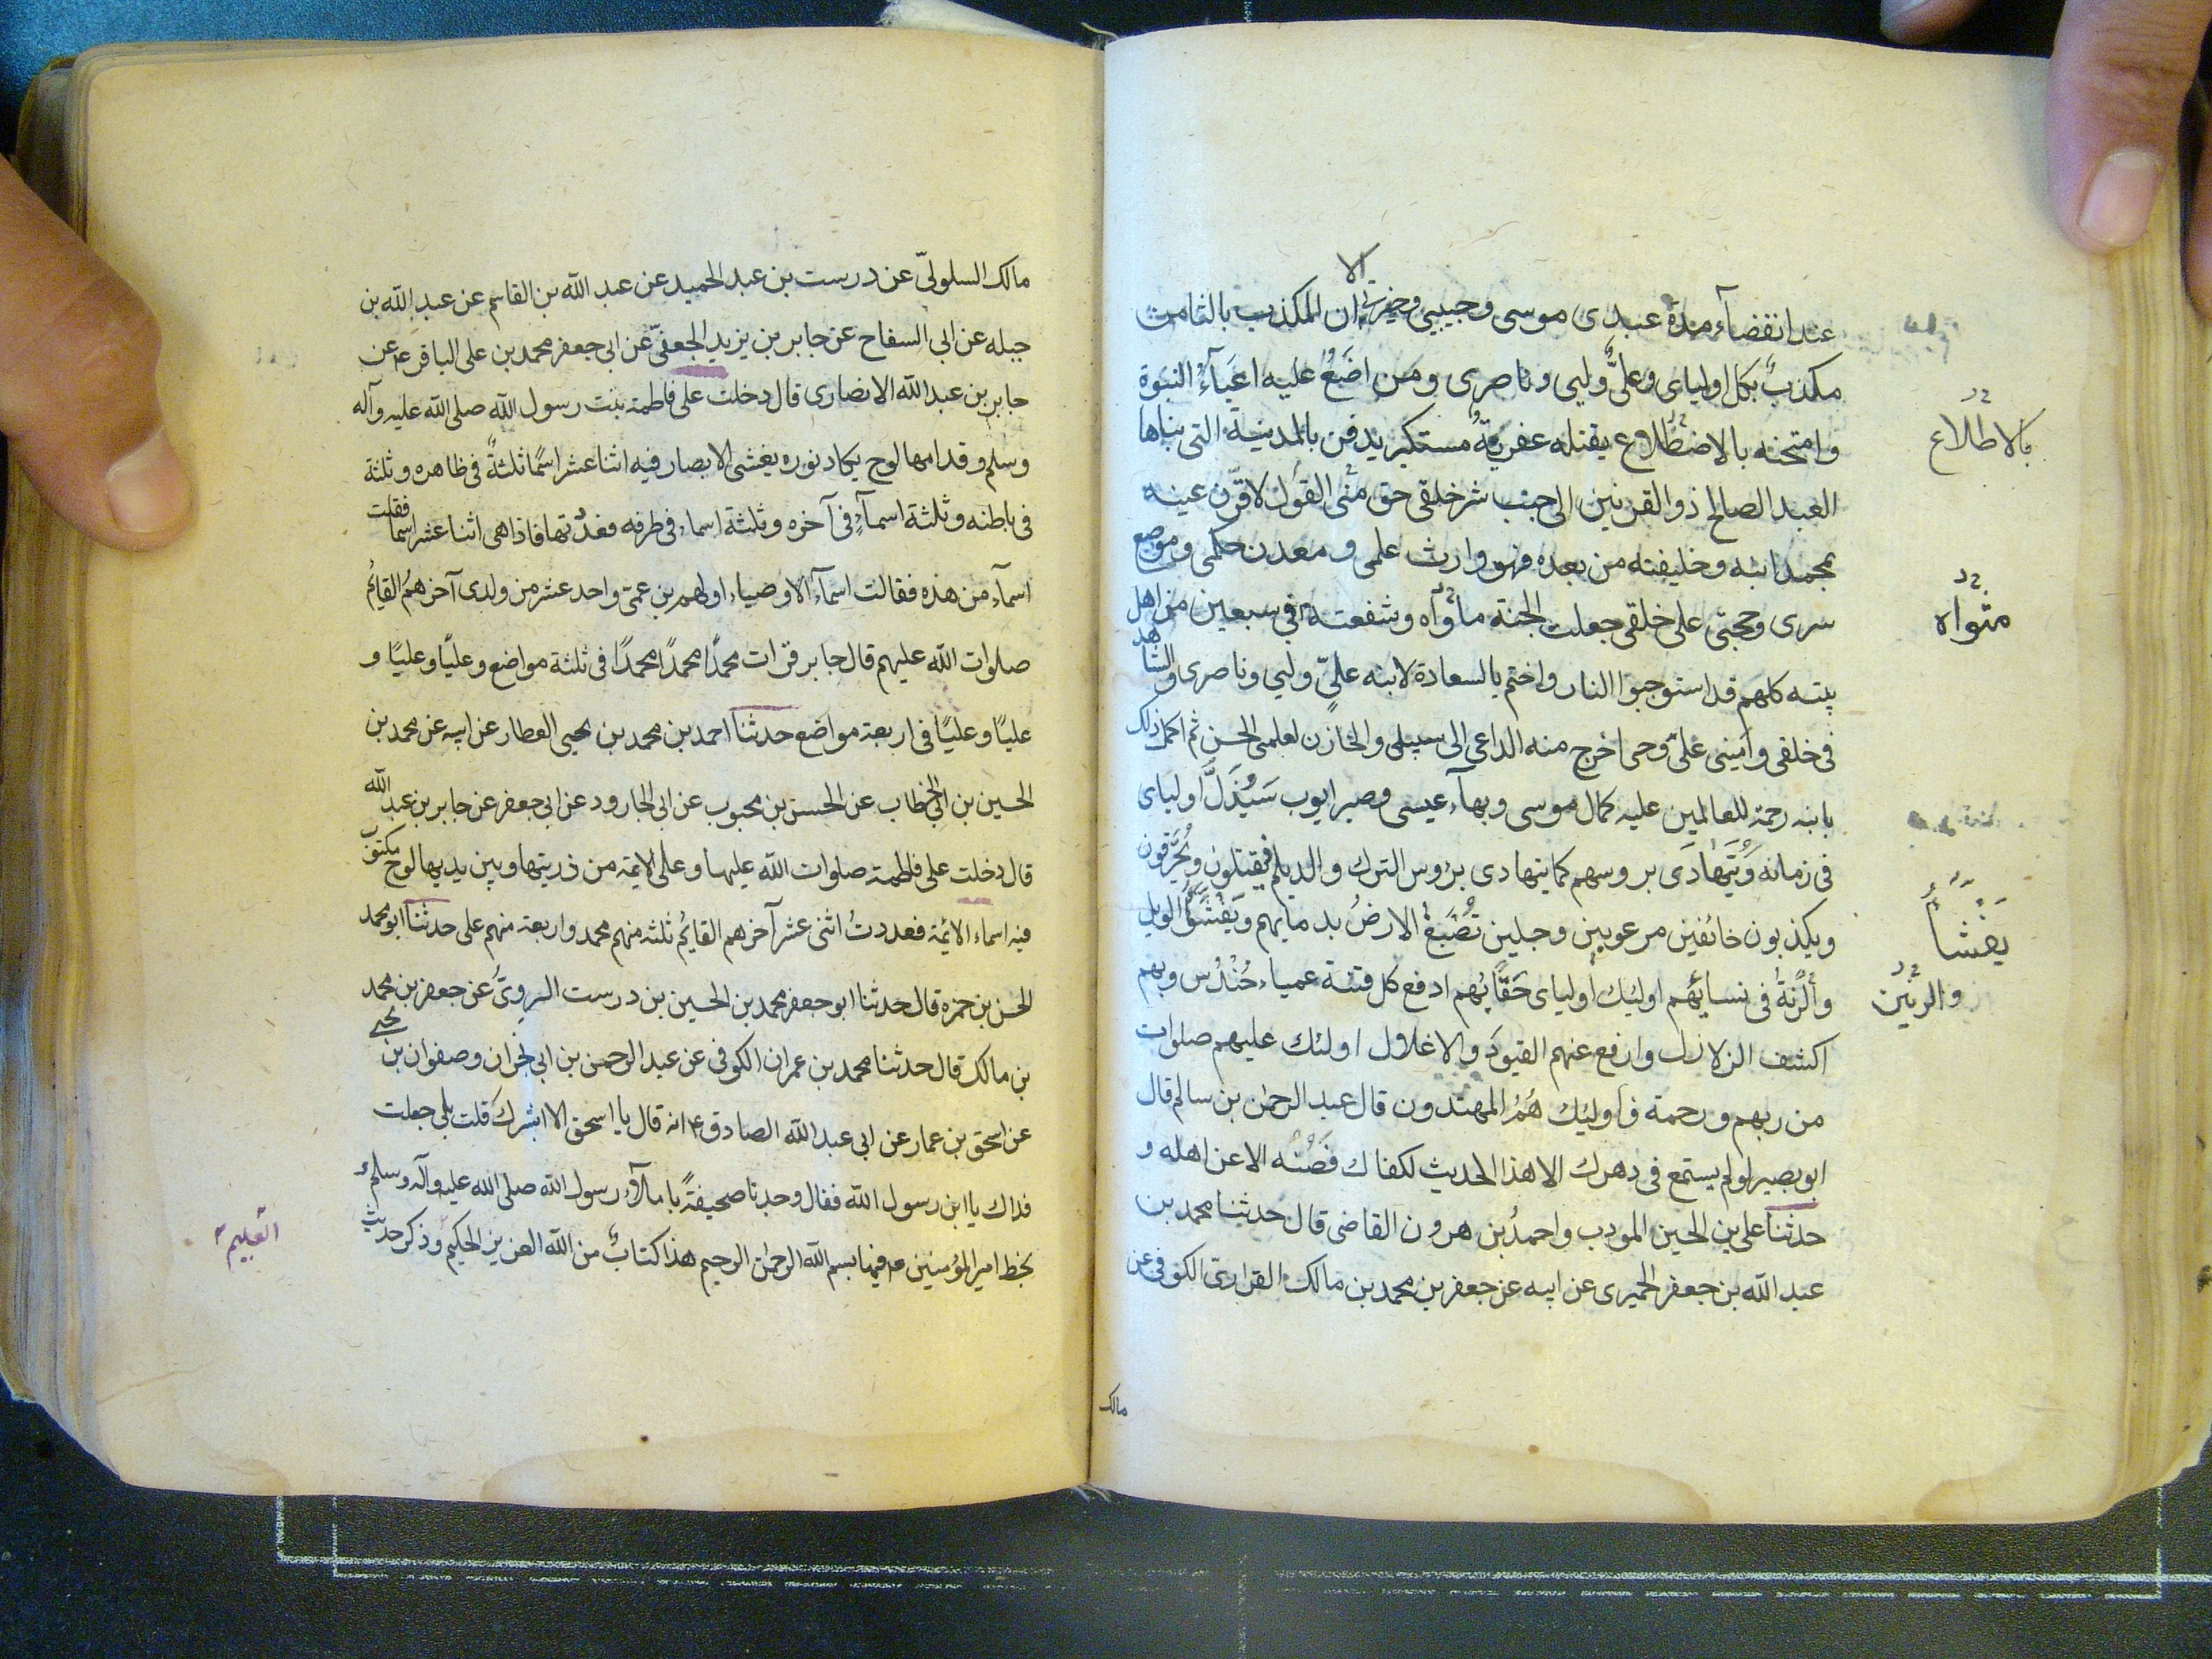 الا
عند انقضآء مدة عبدى موسى وحبيبى وخيرتى ان المكذب بالثامن
مكذبٌ بكل اولياى وعلىٌّ وليى وناصرى ومن اضَعُ عليه اعَبآءَ النبوة
وامتحنه بالاضطلاع يقتله عفريةٌ مستكبر يدفن بالمدينة التى بناها
بالاطلاع
العبد الصالح ذو القرنين الى جنب شر خلقى حق منى القول لاقرّن عينه
بمحمد ابنه وخليفته من بعده فهو وارث علمى ومعدن حكمى وموضع
سرى وحجتى على خلقى جعلت الجنة مأواه وشفعته فى سبعين من اهل
مثواه
بيته كلهم قد استوجبوا النار واختم بالسعادة لابنه علىٍّ وليى وناصرى والشاهد
فى خلقى وامينى على وحى اخرج منه الداعى الى سبيلى والخازن لعلمى الحسن ثم اكمل ذلك
بابنه رحمة للعالمين عليه كمال موسى وبهآء عيسى وصبر ايوب سَيُذَلُّ اولياى
فى زمانه وَيُتَهادَى بروسهم كما يتهادى برؤس الترك والديلم فيقتلون ويُحَرَّقون
ويكذبون خائفين مرعوبين وجلين تُصْبَغُ الارضُ بدمايهم ويَفْشَؤُ الويل
يَفْشَأُ
وألرَّنةُ فى نسائهم اوليك اولياى حَقّاً بُهم ادفع كل فتنة عمياء حُنْدُس وبهم
والرنين
اكشف الزلازل وارفع عنهم القيودَ والاغلال اولئك عليهم صلوات
من ربهم ورحمة واوليك هُمُ المهتدون قال عبد الرحمن بن سالم قال
ابو بصير لو لم يستمع فى دهرك الا هذا الحديث لكفاك فَصُنْه الا عن اهله و
حدثنا على بن الحسين المودب واحمدُ بن هرون القاضى قال حدثنا محمد بن
عبد الله بن جعفر الحميرى عن ابيه عن جعفر بن محمد بن مالك الفزارى الكوفى عن
مالك
مالك السلولىّ عن درست بن عبد الحميد عن عبد الله بن القاسم عن عبد الله بن
جبله عن ابى السفاح عن جابر بن يزيد الجعفىّ عن ابى جعفر محمد بن على الباقر ع عن
جابر بن عبد الله الانصارى قال دخلت على فاطمة بنت رسول الله صلى الله عليه وآله
وسلم وقدامها لوح يكاد نوره يغشى الابصار فيه اثنا عشر اسمًا ثلثةٌ فى ظاهره وثلثة
فى باطنه وثلثة اسمآءٍ فى آخره وثلثة اسماء فى طرفه فعددتها فاذا هى اثنا عشر اسما فقلت
اسمآء من هذه فقالت اسمآء الاوصياء اولهم بن عمىّ واحد عشر من ولدى آخرهم القايُم
صلوات الله عليهم قال جابر فرات محمدًا محمدًا محمدًا فى ثلثة مواضع وعليًا وعليًا و
عليًا وعليًا فى اربعة مواضع حدثنا احمد بن محمد بن يحيى العطار عن ابيه عن محمد بن
الحسين بن ابى الخطاب عن الحسن بن محبوب عن ابى الجارود عن ابى جعفر عن جابر بن عبد الله
قال دخلت على فاطمة صلوات الله عليها وعلى الايمة من ذريتها وبين يديها لوح مكتوب
فيه اسماء الائمة فعددتُ اثنى عشر آخرهم القايُم ثلثه منهم محمد واربعة منهم على حدثنا ابو محمد
الحسن بن حمزه قال حدثنا ابو جعفر محمد بن الحسين بن درست السروىُّ عن جعفر بن محمد
بن مالك قال حدثنا محمد بن عمران الكوفى عن عبد الرحمن بن ابى نجران وصفوان بن يحيى
عن اسحق بن عمار عن ابى عبد الله الصادق ع انه قال يا اسحق الا ابشرك قلت بلى جعلت
فداك يا ابن رسول الله فقال وجدنا صحيفةً باملآء رسول الله صلى الله عليه وآله وسلم و
بخط امير المؤمنين ع فيها بسم الله الرحمن الرحيم هذا كتابٌ من الله العزيز الحكيم وذكر حديث
العليم